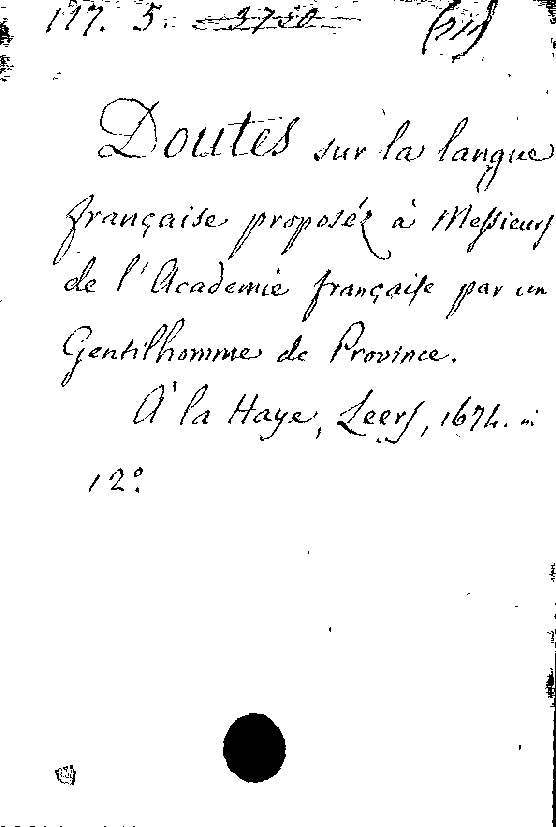 117. 5. 3750
Doutes sur la langue
française proposéz à Meſsieurs
de l'Academie françaiſe par un
Gentilhomme de Province.
À la Haye, Leers, 1674. in
12º.